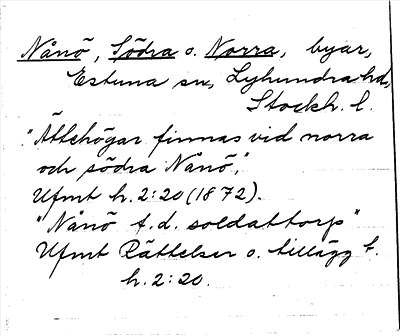 Nånö, Södra o. Norra, byar,
Estuna sn, Lyhundra hd,
Stockh. l.
"Ättehögar finnas vid norra
och södra Nånö,"
Ufmt h. 2:20 (1872).
"Nånö f.d. soldattorp"
Ufmt Rättelser o. tillägg t.
h. 2:20.